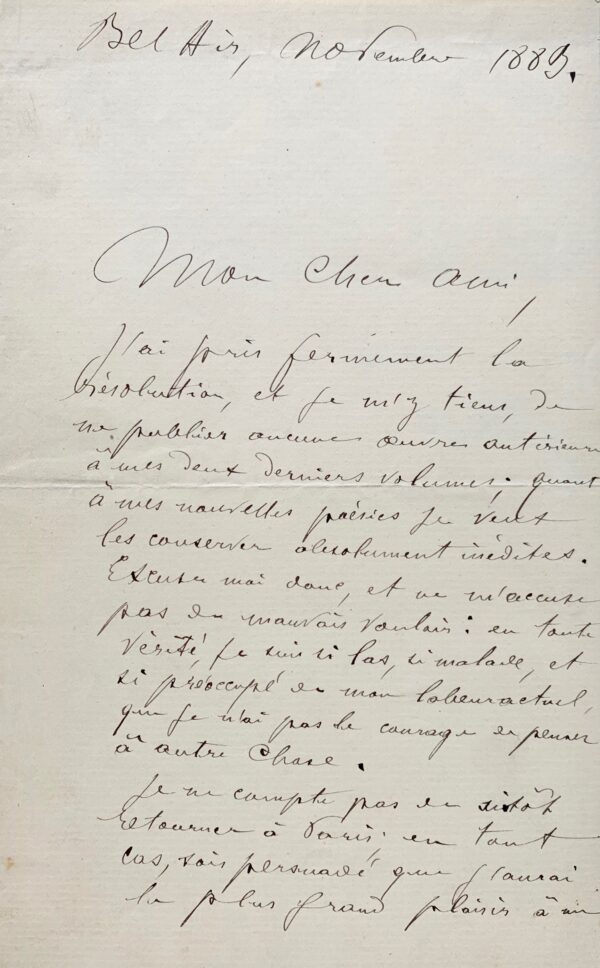 Bel Air, novembre 1883.
Mon cher ami,
J'ai pris fermement la
résolution, et je m'y tiens, de
ne publier aucune œuvre antérieure
à mes deux derniers volumes ; quant
à mes nouvelles poésies je veux
les conserver absolument inédites.
Excuse moi donc, et ne m'accuse
pas de mauvais vouloir : en toute
vérité, je suis si las, si malade, et
si préoccupé de mon labeur actuel,
que je n'ai pas le courage de penser
à autre chose.
Je ne compte pas de sitôt
retourner à Paris ; en tout
cas, sois persuadé que j'aurai
le plus grand plaisir à me